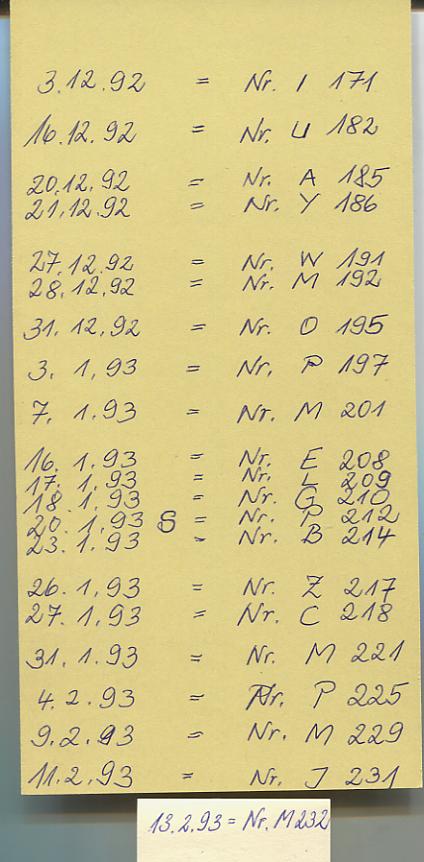 3.12.92 = Nr. I 171
16.12.92 = Nr. U 182
20.12.92 = Nr. A 185
21.12.92 = Nr. Y 186
27.12.92 = Nr. W 191
28.12.92 = Nr. M 192
31.12.92 = Nr. O 195
3. 1. 93 = Nr. P 197
7. 1.93 = Nr. M 201
16. 1.93 = Nr. E 208
17. 1.93 = Nr. L 209
18. 1.93 = Nr. G 210
20. 1.93 S = Nr. P 212
23. 1.93 = Nr. B 214
26. 1.93 = Nr. Z 217
27. 1.93 = Nr. C 218
31. 1.93 = Nr. M 221
4. 2. 93 = Nr. P 225
9. 2. 93 = Nr. M 229
11. 2.93 = Nr. J 231
13.2.93 = Nr. M 232